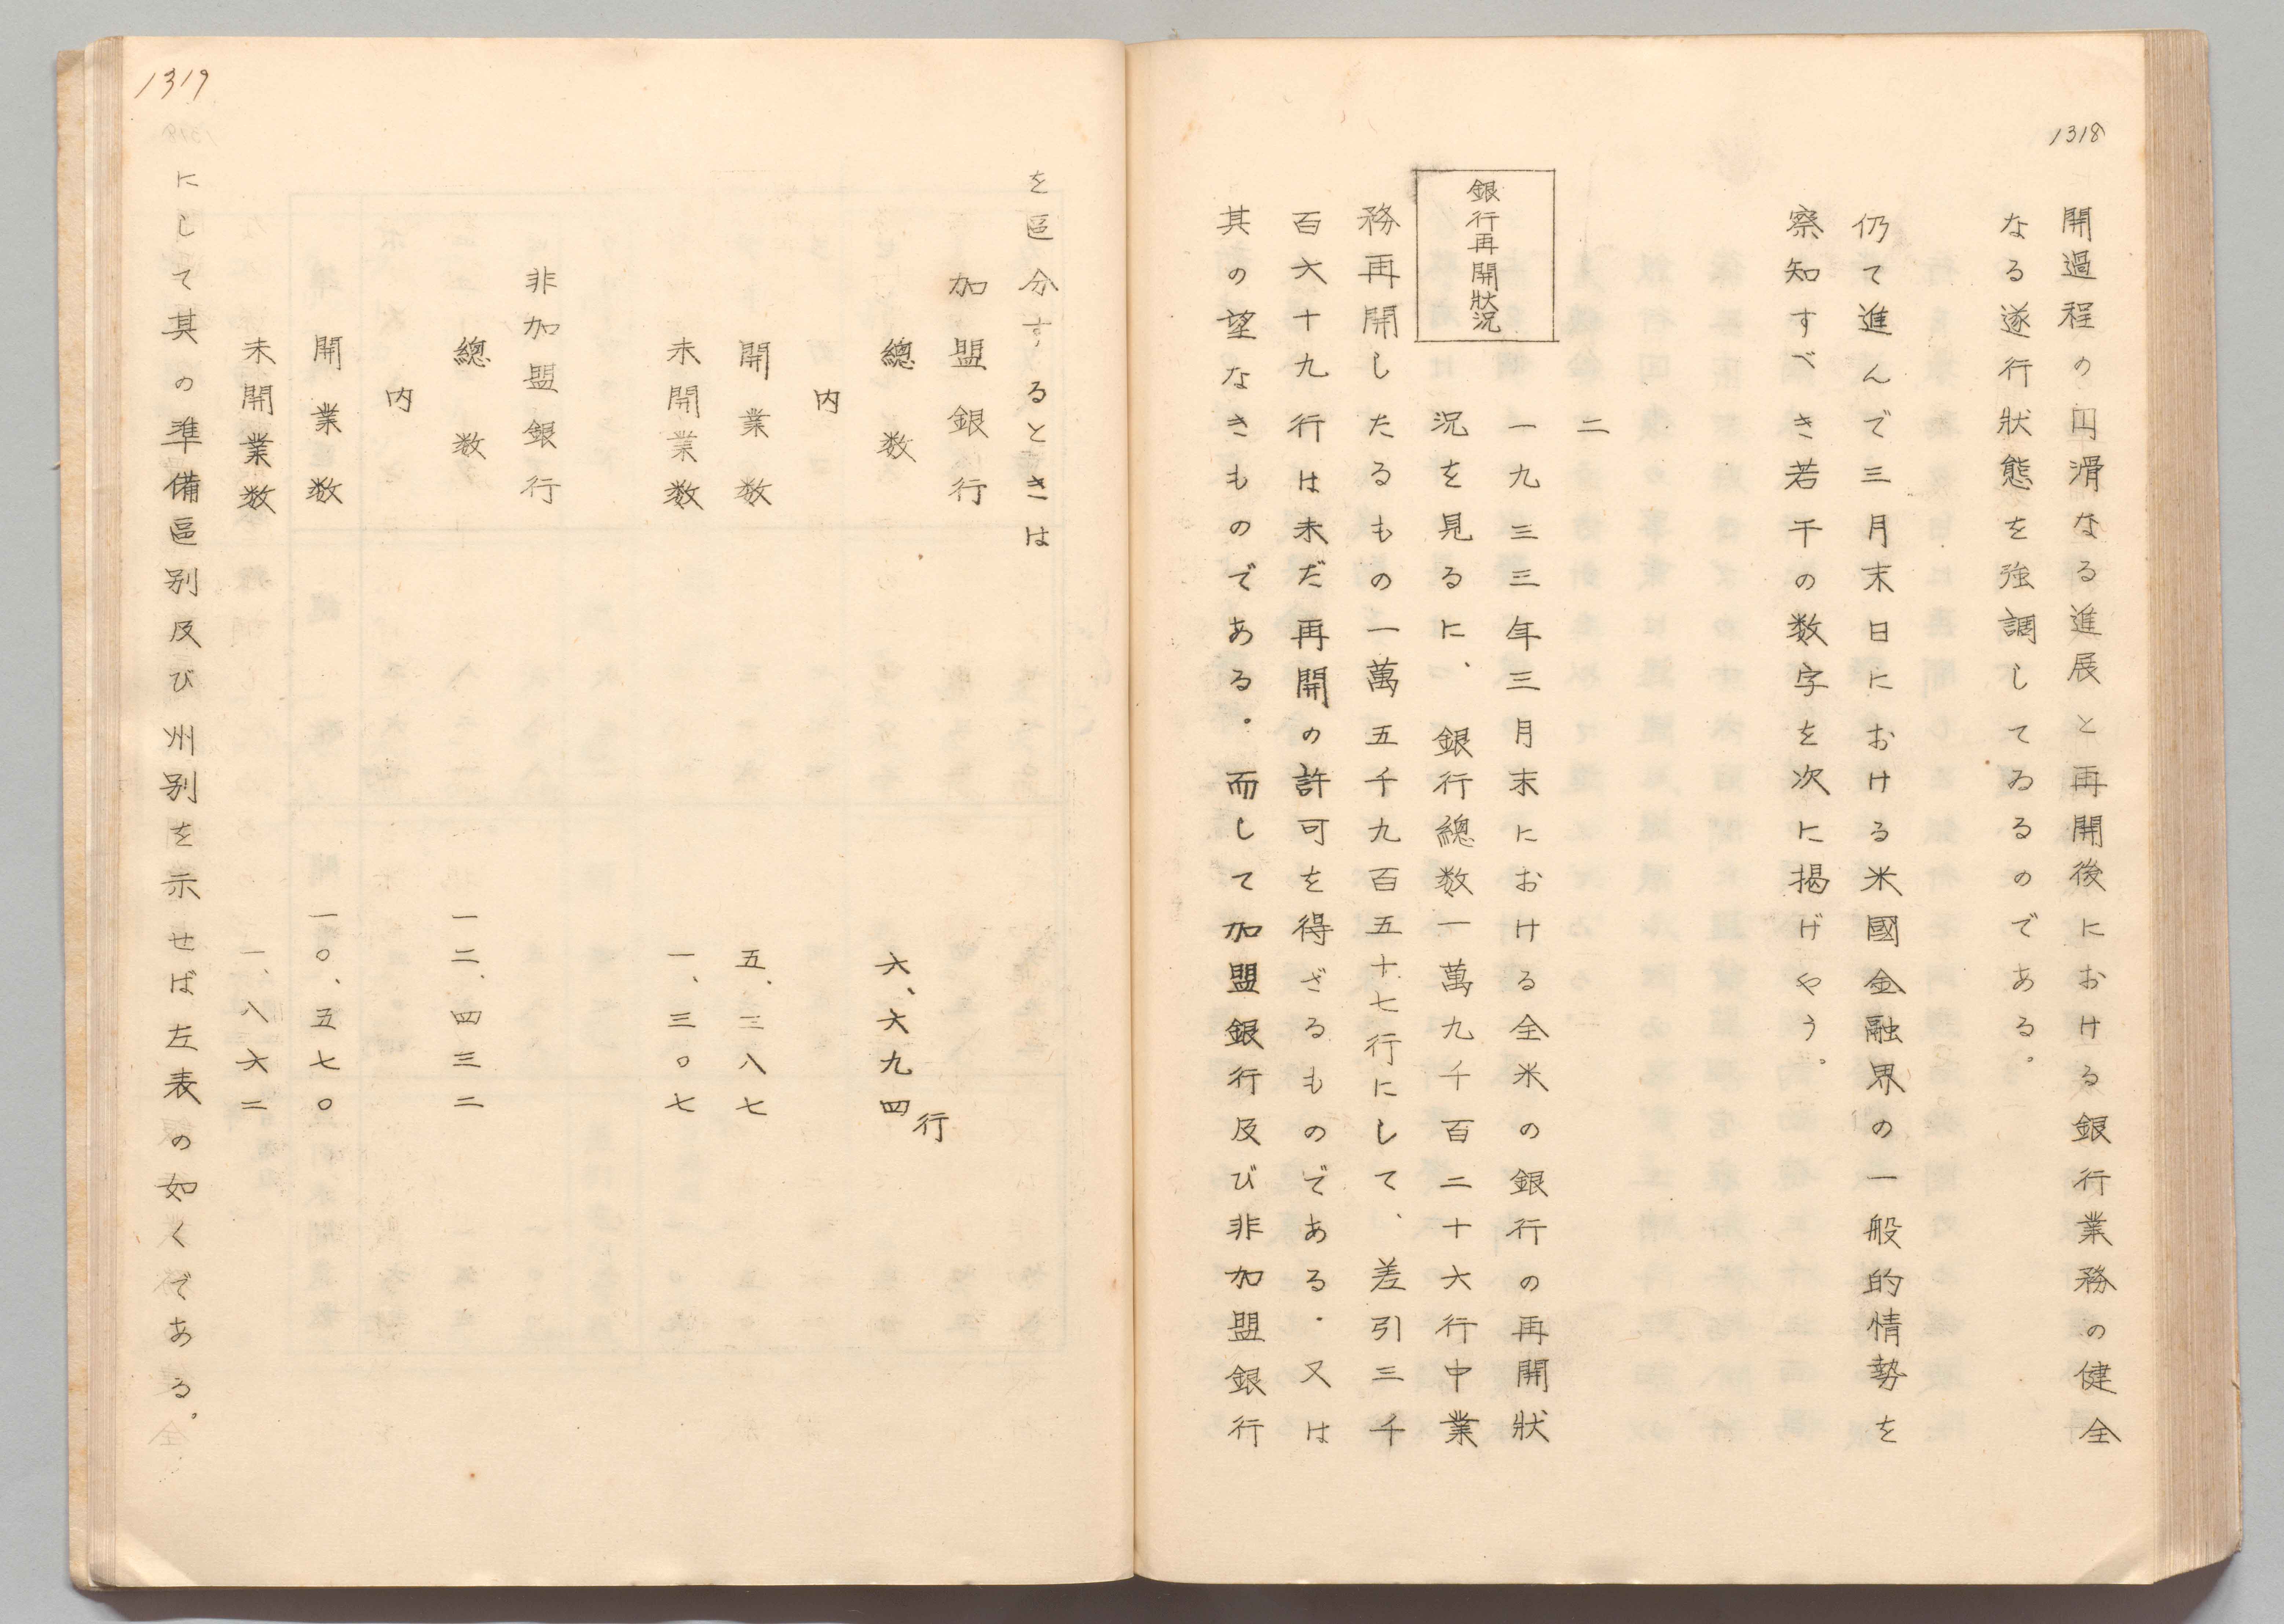 1318
開過程の円滑なる進展と再開後における銀行業務の健全
なる遂行狀態を強調してゐるのである。
仍て進んで三月末日における米國金融界の一般的情勢を
察知すべき若干の数字を次に掲げやう。
二
銀行再開狀況
一九三三年三月末における全米の銀行の再開狀
況を見るに、銀行總数一萬九千百二十六行中業
務再開したるもの一萬五千九百五十七行にして、差引三千
百六十九行は未だ再開の許可を得ざるものである．又は
其の望なきものである。而して加盟銀行及び非加盟銀行
1319
を區分するときは
加盟銀行
行
總数 六、六九四
内
開業数 五、三八七
未開業数 一、三〇七
非加盟銀行
總数 一二、四三二
内
開業数 一〇、五七〇
未開業数 一、八六二
にして其の準備區别及び州别を示せば左表の如くである。